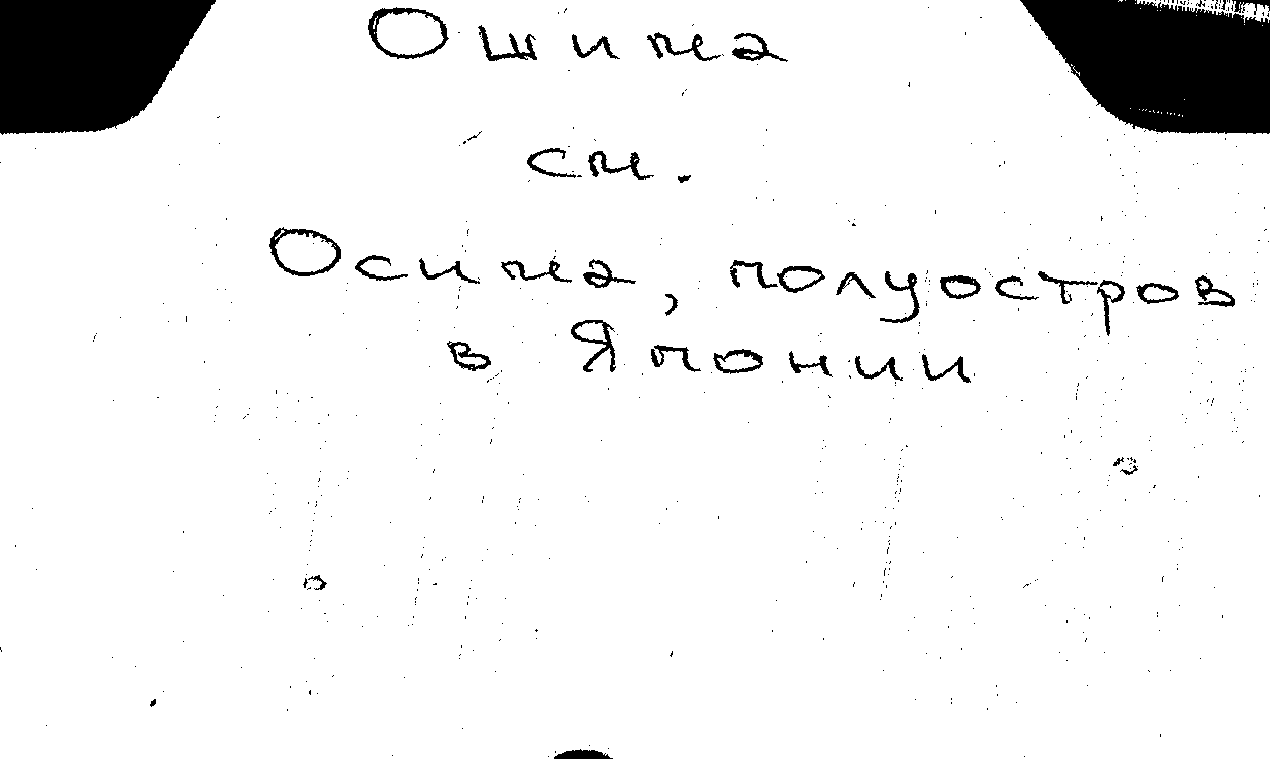 Ошима
см.
Осима, полуостров
в Японии